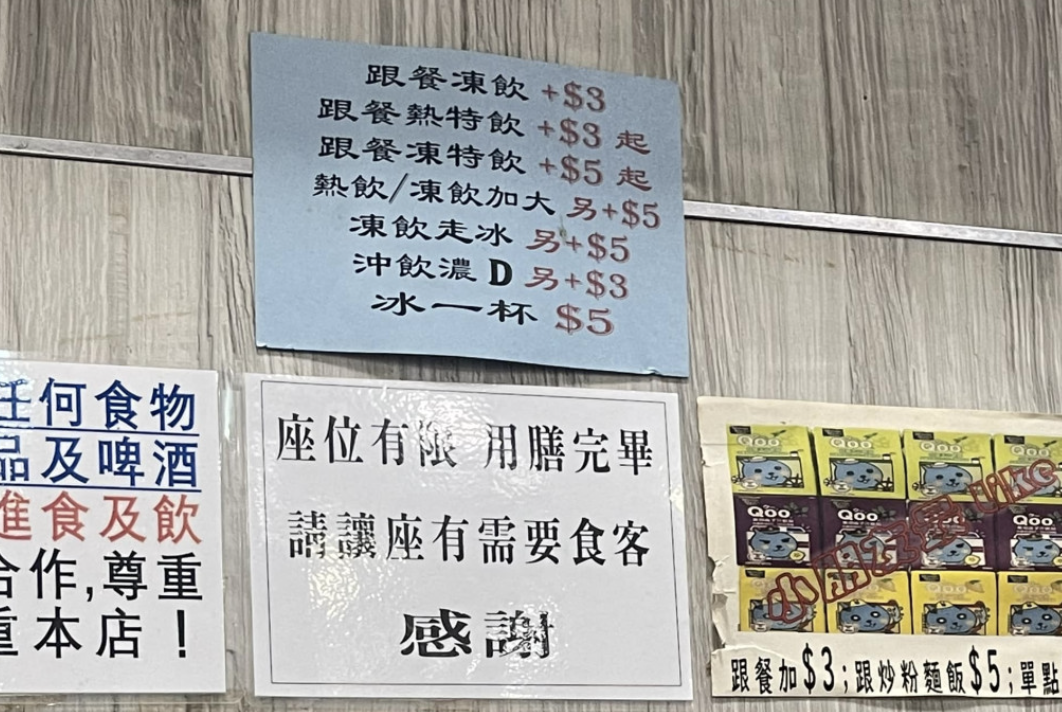 跟餐凍飲 +$3
跟餐熱特飲 +$3 起
跟餐凍特飲 +$5 起
熱飲/凍飲加大 另+$5
凍飲走冰 另+$5
沖飲濃 D 另+$3
冰一杯 $5
任何食物
品及啤酒
進食及飲
合作,尊重
重本店！
座位有限 用膳完畢
請讓座有需要食客
感謝
Qoo Qoo Qoo Qoo
Qoo Qoo Qoo Qoo
跟餐加$3;跟炒粉麵飯$5;單點